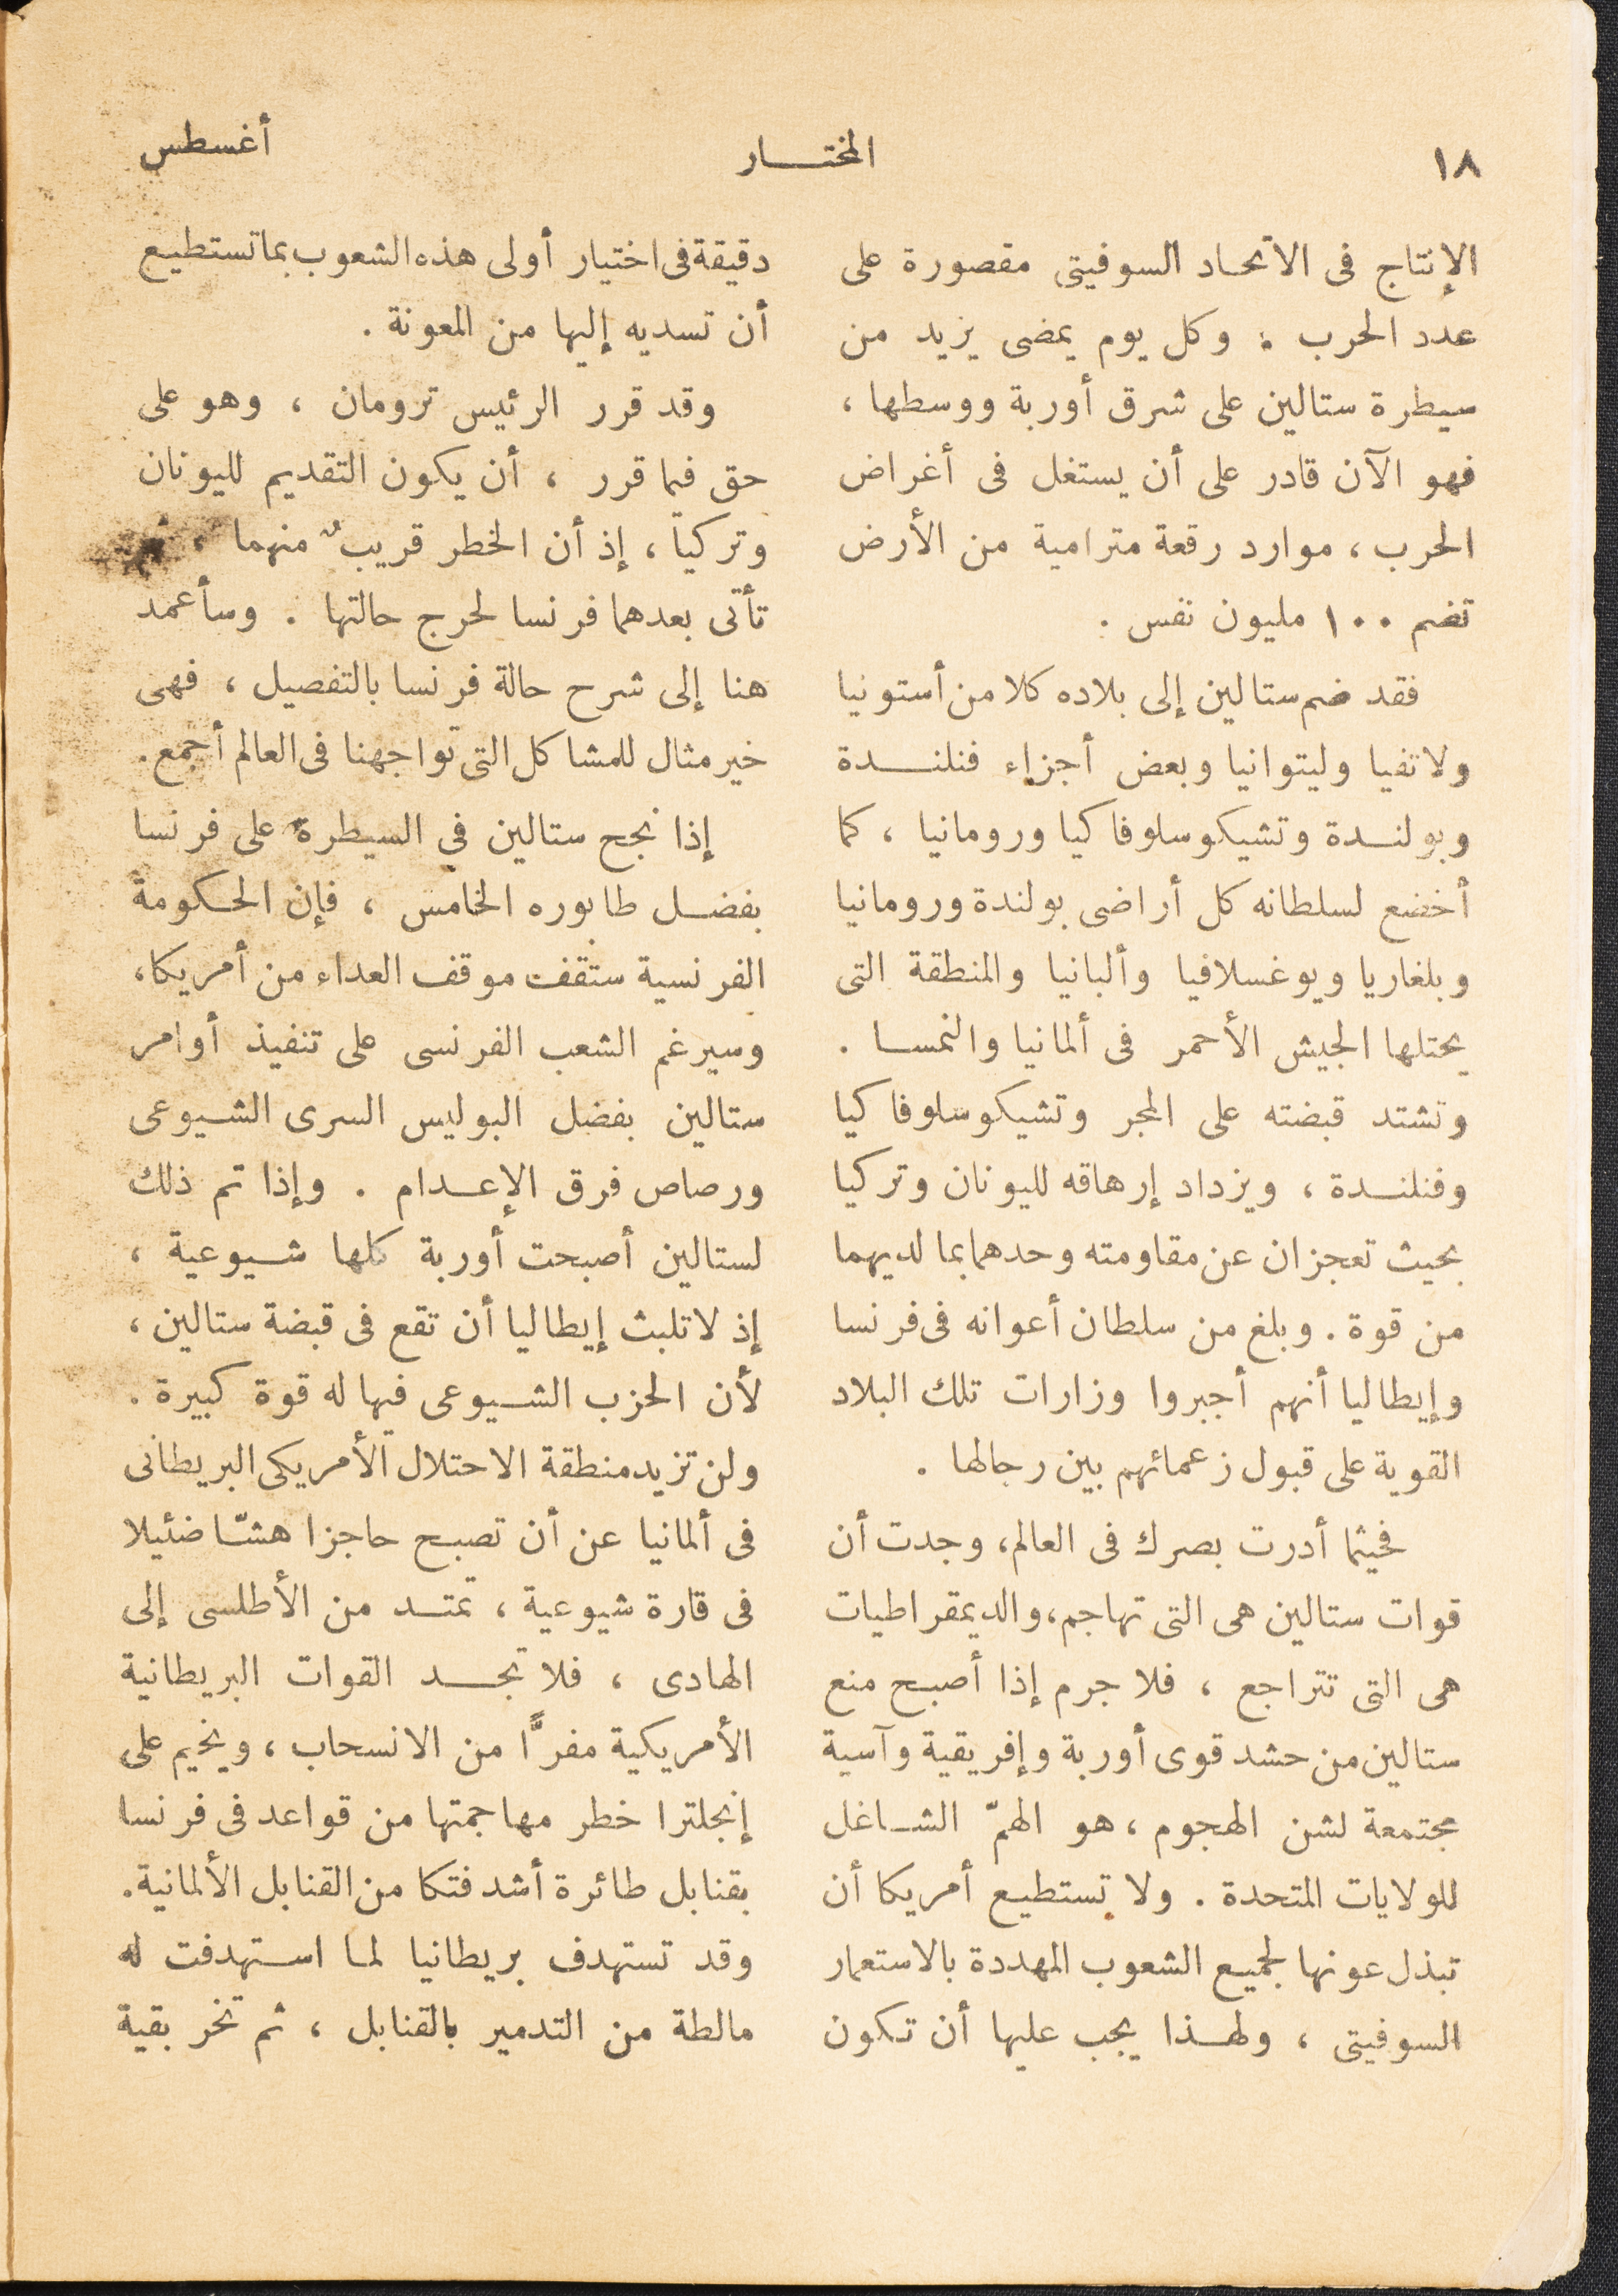 ١٨
المختـــار
أغسطس
الإنتاج فى الاتحاد السوفيتى مقصورة على
عدد الحرب . وكل يوم يمضى يزيد من
سيطرة ستالين على شرق أوربة ووسطها ،
فهو الآن قادر على أن يستغل فى أغراض
الحرب ، موارد رقعة مترامية من الأرض
تضم ١٠٠ مليون نفس .
فقد ضم ستالين إلى بلاده كلا من أستونيا
ولاتفيا وليتوانيا وبعض أجزاء فنلنــدة
وبولنـدة وتشيكوسلوفاكيا ورومانيا ، كما
أخضع لسلطانه كل أراضى بولندة ورومانيا
وبلغاريا ويوغسلافيا وألبانيا والمنطقة التى
يحتلها الجيش الأحمر فى ألمانيا والنمسا .
وتشتد قبضته على المجر وتشيكوسلوفاكيا
وفنلنـدة ، ويزداد إرهاقه لليونان وتركيا
بحيث تعجزان عن مقاومته وحدهما بما لديهما
من قوة . وبلغ من سلطان أعوانه فى فرنسا
وإيطاليا أنهم أجبروا وزارات تلك البلاد
القوية على قبول زعمائهم بين رجالها .
فحيثما أدرت بصرك فى العالم ، وجدت أن
قوات ستالين هى التى تهاجم ، والديمقراطيات
هى التى تتراجع ، فلا جرم إذا أصبح منع
ستالين من حشد قوى أوربة وإفريقية وآسية
مجتمعة لشن الهجوم ، هو الهمّ الشـاغل
للولايات المتحدة . ولا تستطيع أمريكا أن
تبذل عونها لجميع الشعوب المهددة بالاستعمار
السوفيتى ، ولهـذا يجب عليها أن تكون
دقيقة فى اختيار أولى هذه الشعوب بما تستطيع
أن تسديه إليها من المعونة .
وقد قرر الرئيس ترومان ، وهو على
حق فيما قرر ، أن يكون التقديم لليونان
وتركيا ، إذ أن الخطر قريبٌ منهما ،
تأتى بعدهما فرنسا لحرج حالتها . وسأعمد
هنا إلى شرح حالة فرنسا بالتفصيل ، فهى
خير مثال للمشاكل التى تواجهنا فى العالم أجمع .
إذا نجح ستالين في السيطرة على فرنسا
بفضـل طابوره الخامس ، فإن الحكومة
الفرنسية ستقف موقف العداء من أمريكا ،
وسيرغم الشعب الفرنسى على تنفيذ أوامر
ستالين بفضل البوليس السرى الشـيوعى
ورصاص فرق الإعـدام . وإذا تم ذلك
لستالين أصبحت أوربة كلها شـيوعية ،
إذ لا تلبث إيطاليا أن تقع فى قبضة ستالين ،
لأن الحزب الشـيوعى فيها له قوة كبيرة .
ولن تزيد منطقة الاحتلال الأمريكى البريطانى
فى ألمانيا عن أن تصبح حاجزا هشّا ضئيلا
فى قارة شيوعية ، تمتـد من الأطلسى إلى
الهادى ، فلا تجـد القوات البريطانية
الأمريكية مفرًّا من الانسحاب ، ويخيم على
إنجلترا خطر مهاجمتها من قواعد فى فرنسا
بقنابل طائرة أشد فتكا من القنابل الألمانية .
وقد تستهدف بريطانيا لما استهدفت له
مالطة من التدمير بالقنابل ، ثم تخر بقية